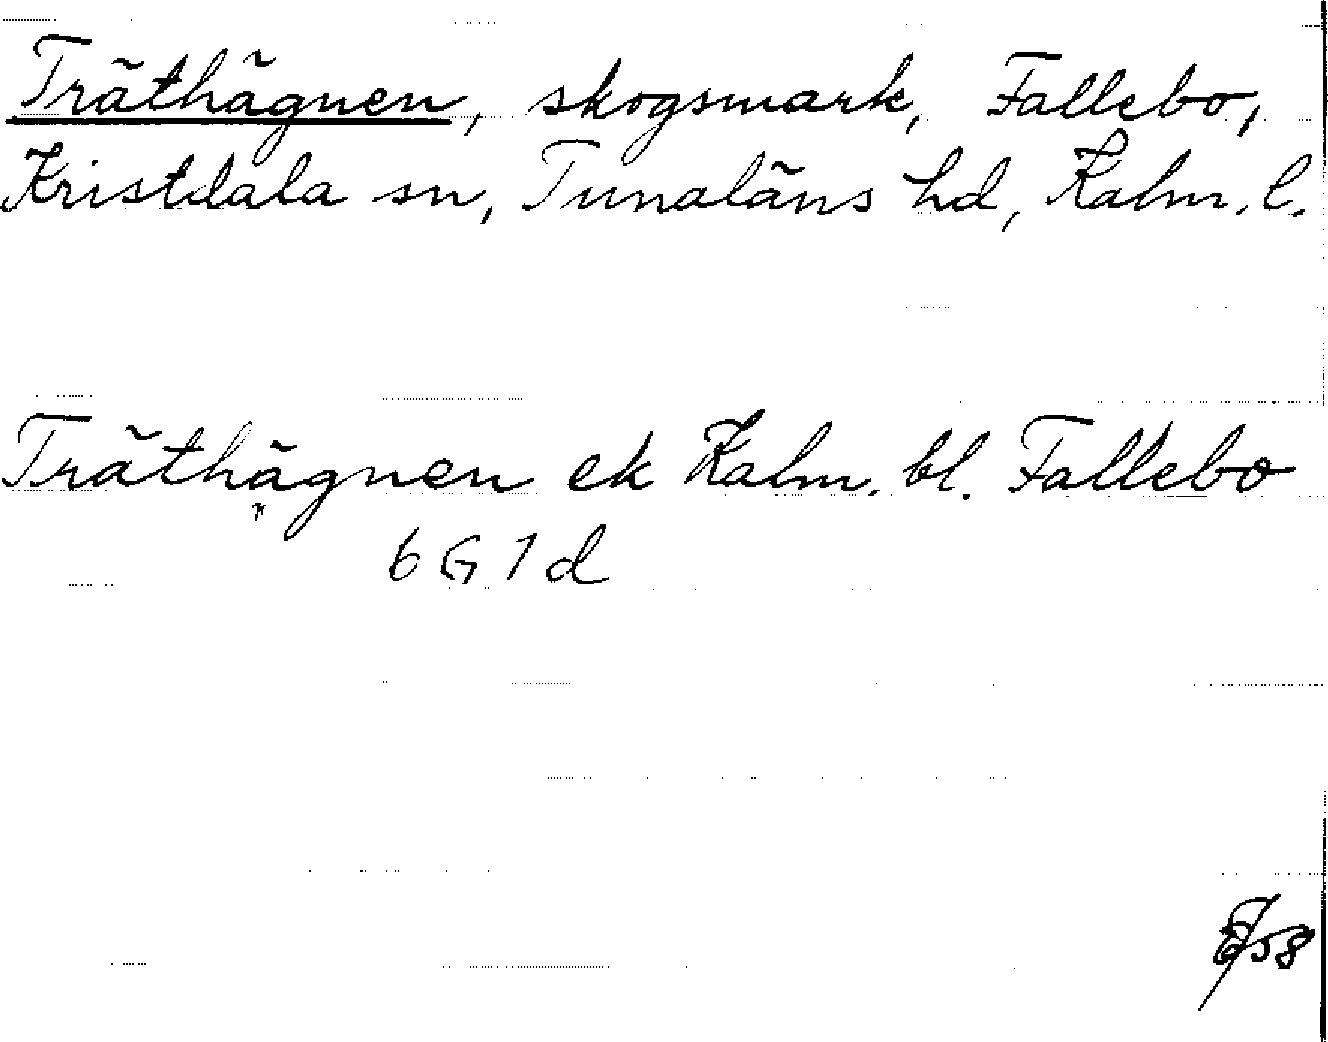 Träthägnen, skogsmark, Fallebo,
Kristdala sn, Tunaläns hd, Kalm. l.
Träthägnen ek Kalm. bl. Fallebo
6 G 1 d